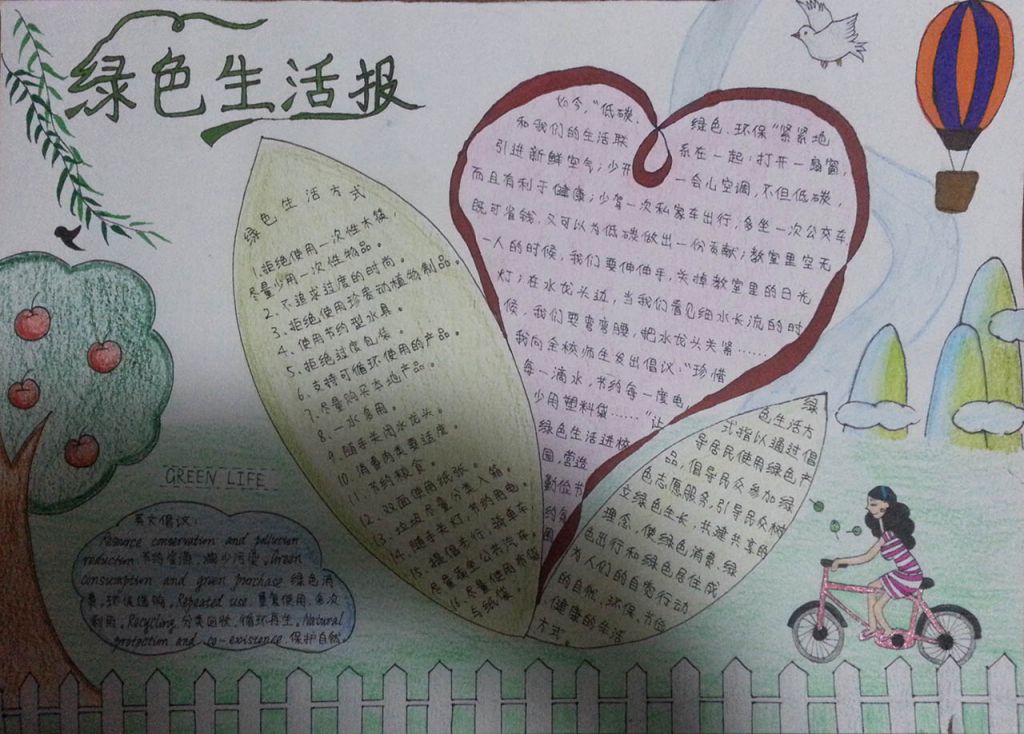 绿色生活报
绿色生活方式
1.拒绝使用一次性木筷,
尽量少用一次性物品。
2、不追求过度的时尚。
3、拒绝使用珍贵动植物制品。
4、使用节约型水具。
5、拒绝过度包装。
6、支持可循环使用的产品。
7、尽量购买本地产品。
8、一水多用。
9、随手关闭水龙头。
10、消费肉类要适度。
11、节约粮食。
12、双面使用纸张。
13、垃圾尽量分类入箱。
14、随手关灯,节约用电。
15、提倡步行,骑单车
尽量乘坐公共汽车。
16、尽量使用布袋
与纸袋
如今,“低碳、绿色、环保”紧紧地
和我们的生活联系在一起:打开一扇窗,
引进新鲜空气;少开一会儿空调,不但低碳,
而且有利于健康;少驾一次私家车出行,多坐一次公交车
既可省钱,又可以为低碳做出一份贡献;教室里空无
一人的时候,我们要伸伸手,关掉教室里的日光
灯;在水龙头边,当我们看见细水长流的时
候,我们要弯弯腰,把水龙头关紧……
我向全校师生发出倡议:“珍惜
每一滴水,节约每一度电,
少用塑料袋……”让
绿色生活进校
园,营造
勤俭节
约
园
绿
色生活方
式指以通过倡
导居民使用绿色产
品,倡导民众参加绿
色志愿服务,引导民众树
立绿色生长,共建共享的
理念,使绿色消费,绿
色出行和绿色居住成
为人们的自觉行动
的自然、环保、节俭
健康的生活
方式。
GREEN LIFE
英文倡议:
Resource conservation and pollucion
reduction 节约资源,减少污染。Green
consumption and green purchase 绿色消
费,环保选购。Repeated use 重复使用,多次
利用。Recycling 分类回收,循环再生。Natural
protection and co-existence 保护自然